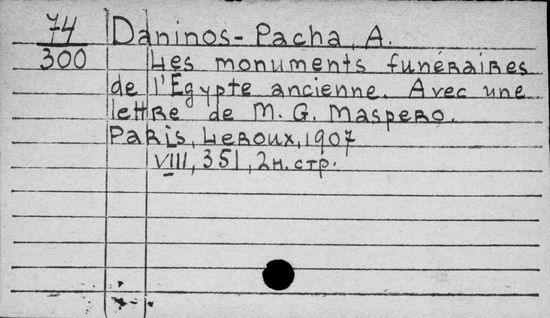 74 Daninos-Pacha, A.
300 Les monuments funéraires
de l'Egypte ancienne. Avec une
lettre de M. G. Maspero.
Paris, Leroux, 1907
VIII, 351, 2 н. стр.